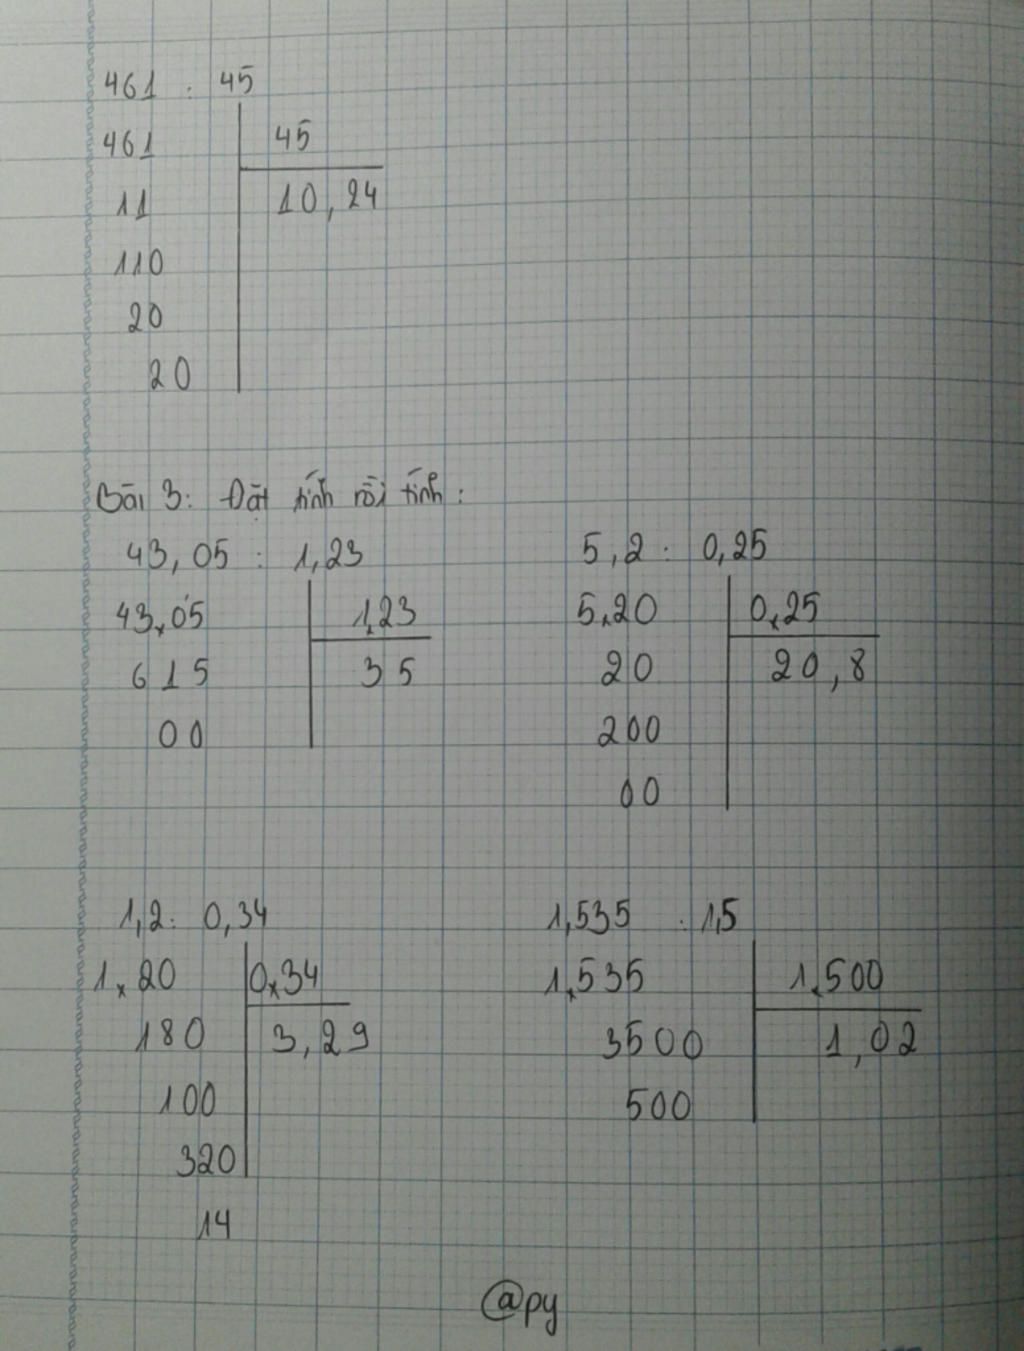 461 : 45
461 45
11 10,24
110
20
20
Bài 3: Đặt tính rồi tính:
43,05 : 1,23
43,05 1,23
615 35
00
5,2 : 0,25
5,20 0,25
20 20,8
200
00
1,2 : 0,34
1,20 0,34
180 3,29
100
320
14
1,535 : 1,5
1,535 1,500
3500 1,02
500
@py